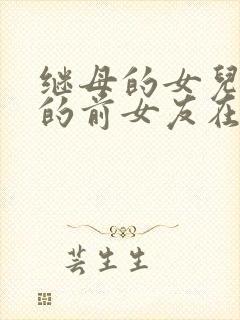 继母的女兒
的前女友在
芸生生